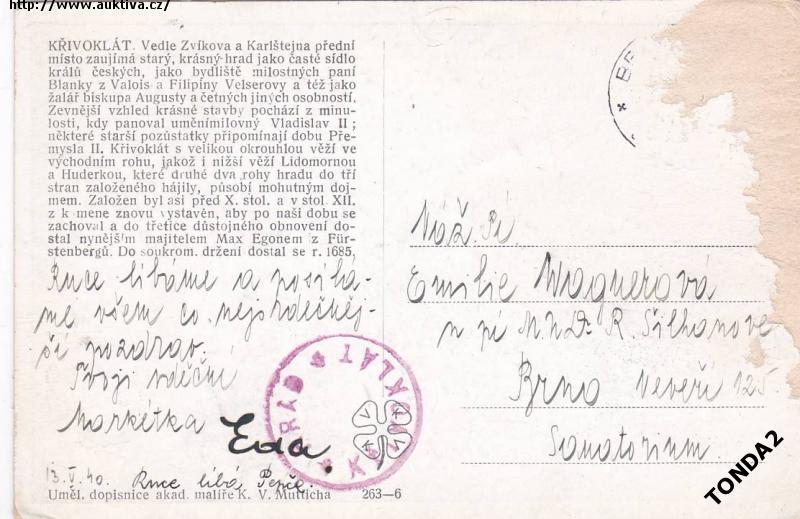 http://www.auktiva.cz/
KŘIVOKLÁT. Vedle Zvíkova a Karlštejna přední
místo zaujímá starý, krásný hrad jako časté sídlo
králů českých, jako bydliště milostných paní
Blanky z Valois a Filipiny Velserovy a též jako
žalář biskupa Augusty a četných jiných osobností.
Zevnější vzhled krásné stavby pochází z minu-
losti, kdy panoval uměnímilovný Vladislav II;
některé starší pozůstatky připomínají dobu Pře-
mysla II. Křivoklát s velikou okrouhlou věží ve
východním rohu, jakož i nižší věží Lidomornou
a Huderkou, které druhé dva rohy hradu do tří
stran založeného hájily, působí mohutným doj-
mem. Založen byl asi před X. stol. a v stol. XII.
z kamene znovu vystavěn, aby po naši dobu se
zachoval a do třetice důstojného obnovení do-
stal nynějším majitelem Max Egonem z Für-
stenbergů. Do soukrom. držení dostal se r. 1685.
Ruce líbáme a posílá-
me všem co nejsrdečněj-
ší pozdrav.
Tvoji vděční
Markétka
Eda.
13.V.40. Ruce líbá Pepča.
HRAD KŘIVOKLÁT
Uměl. dopisnice akad. malíře K. V. Mutticha
263—6
BR
Váž. Pí
Emilie Wagnerová
u pí M.U.Dr. R. Šilhanove
Brno Veveří 125.
Sanatorium.
TONDA2